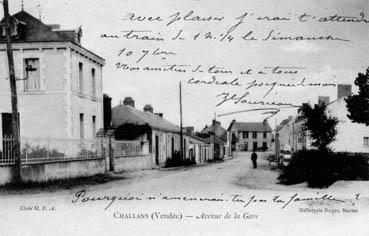 avec plaisir j'irai t'attendre
au train de 1h.1/4 le dimanche
10 7bre
amitiés de tous et à tous
cordiale poignée de main
Pourquoi n'amènerais-tu pas ta famille ?
Cliché M. P. A.
Héliotypie Dugas, Nantes
CHALLANS (Vendée) — Avenue de la Gare